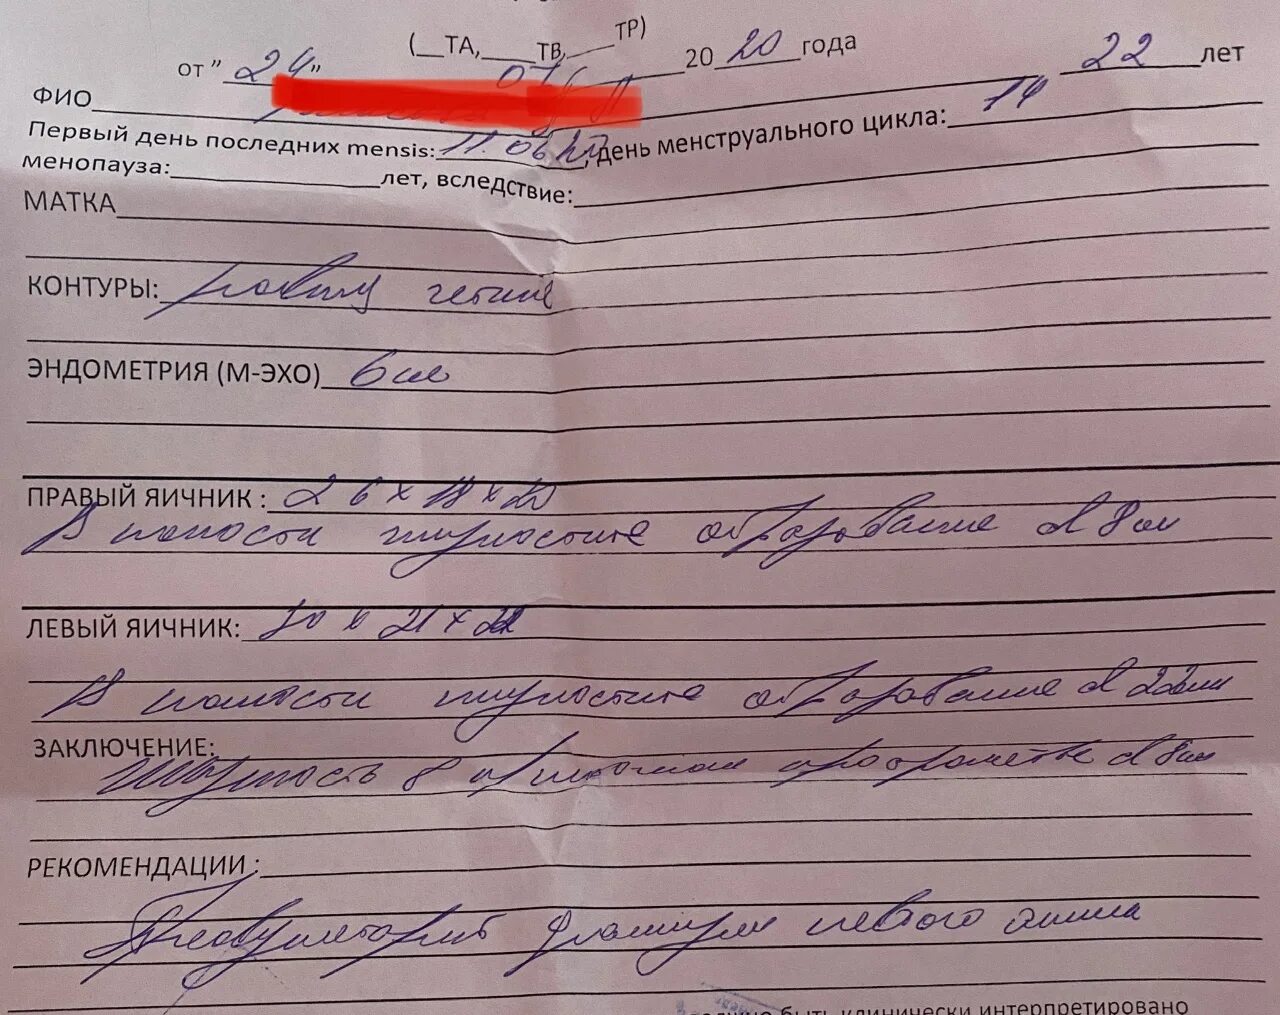 (__ТА,____ТВ,____ТР)
от "24" 07 2020 года 22 лет
ФИО
Первый день последних mensis: 11.06.20, день менструального цикла: 14
менопауза:____лет, вследствие:
МАТКА
КОНТУРЫ: ровные четкие
ЭНДОМЕТРИЯ (М-ЭХО) 6 мм
ПРАВЫЙ ЯИЧНИК : 26 х 18 х 20
В полости жидкостное образование d 8 мм
ЛЕВЫЙ ЯИЧНИК: 30 х 21 х 22
В полости жидкостное образование d 22 мм
ЗАКЛЮЧЕНИЕ:
Жидкость в d 8 мм
РЕКОМЕНДАЦИИ :
фолликул левого яичника
быть клинически интерпретировано